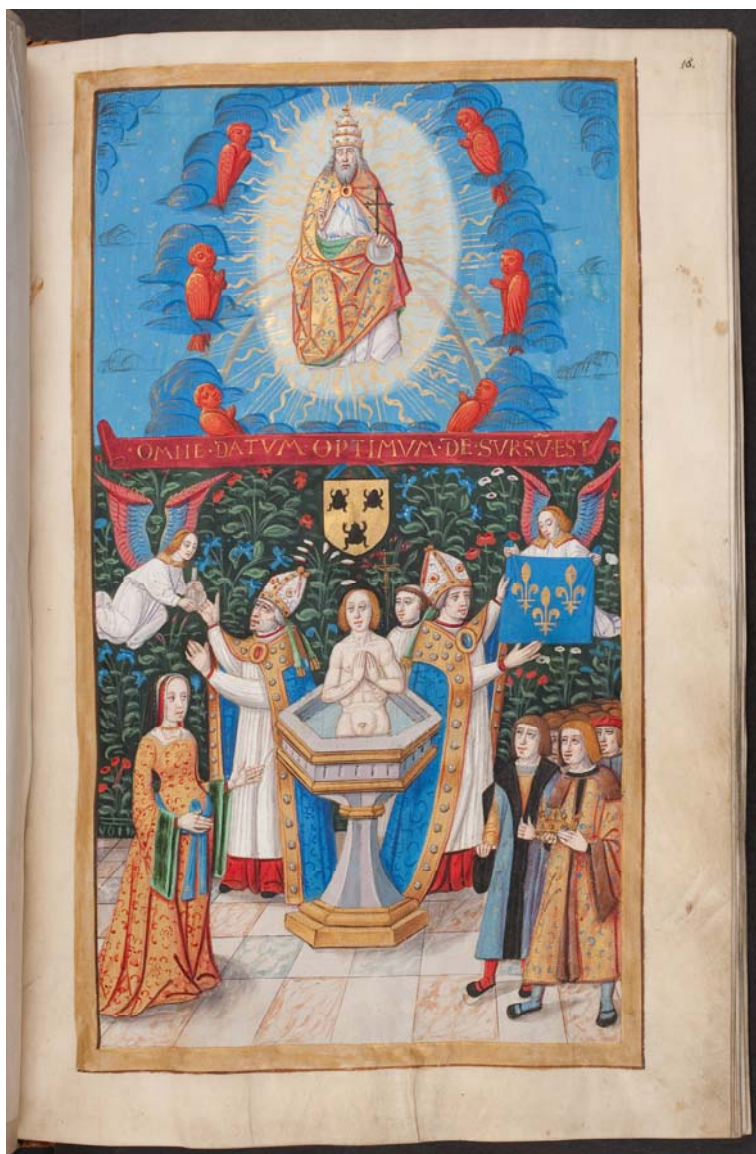 18.
OMNE·DATVM·OPTIMVM·DE·SVRSŪ·EST